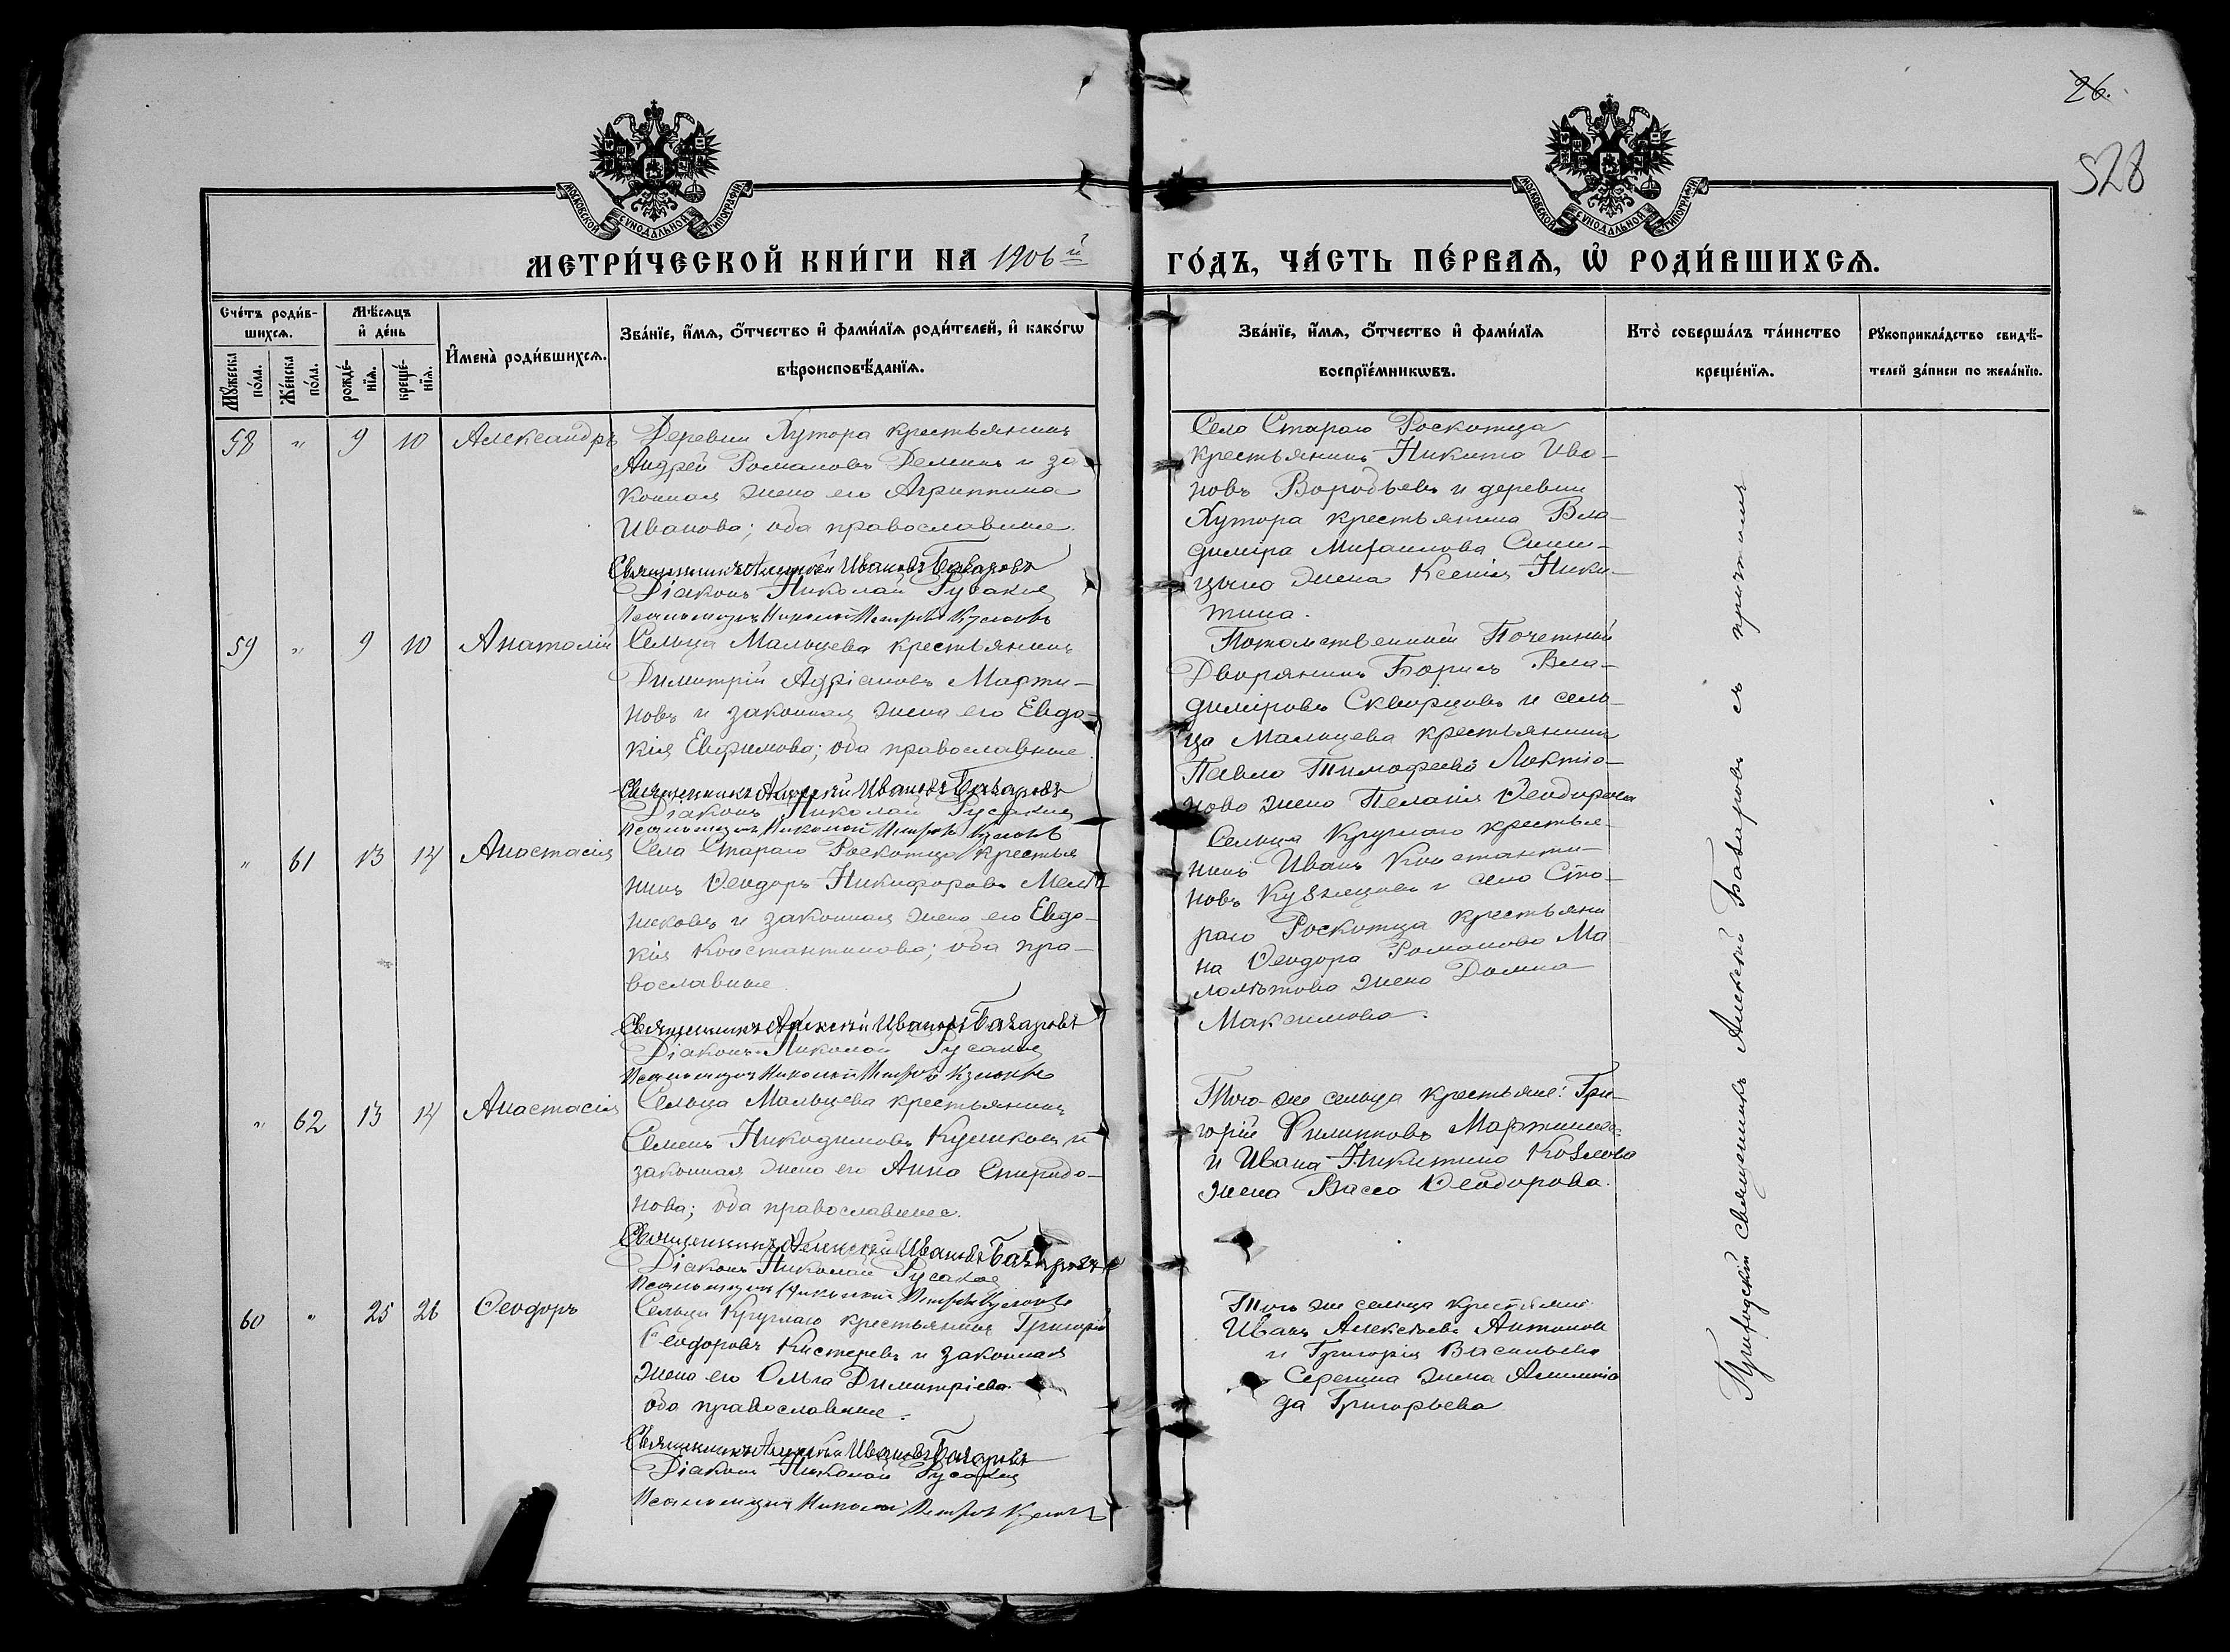 26.
528
МОСКОВСКОЙ СѴНОДАЛЬНОЙ ТИПОГРАФІИ
МОСКОВСКОЙ СѴНОДАЛЬНОЙ ТИПОГРАФІИ
МЕТРИ́ЧЕСКОЙ КНИ́ГИ НА 1906й
ГО́ДЪ, ЧА́СТЬ ПЕ́РВАѦ, Ѡ҆ РОДИ́ВШИХСѦ.
Сче́тъ роди́в-
шихсѧ.
Мѣ́сѧцъ
и҆ де́нь
Мꙋ́жеска
по́ла.
Же́нска
по́ла.
рожде́-
нїѧ.
креще́-
нїѧ.
И҆мена̀ роди́вшихсѧ.
Зва́нїе, и҆́мѧ, ѻ҆́тчество и҆ фами́лїѧ роди́телей, и҆ како́гѡ
вѣроисповѣ́данїѧ.
Зва́нїе, и҆́мѧ, ѻ҆́тчество и҆ фами́лїѧ
воспрїе́мникѡвъ.
Кто̀ соверша́лъ та́инство
креще́нїѧ.
Рꙋкоприкла́дство свидѣ́-
телей за́писи по жела́нїю.
58 " 9 10 Александръ
Деревни Хутора крестьянинъ
Андрей Романовъ Деминъ и за-
конная жена его Агриппина
Иванова; оба православные.
Священникъ Алексѣй Ивановъ Базаровъ
Діаконъ Николай Русаковъ
Псаломщикъ Николай Петровъ
Село Стараго Роскотца
крестьянинъ Никита Ива-
новъ Воробьевъ и деревни
Хутора крестьянина Вла-
диміра Михаилова Сини-
цына жена Ксенія Ники-
тина.
59 " 9 10 Анатолій
Сельца Мальцева крестьянинъ
Димитрій Адріановъ Марти-
новъ и законная жена его Евдо-
кія Евфимова; оба православные
Священникъ Алексѣй Ивановъ Базаровъ
Діаконъ Николай Русаковъ
Псаломщикъ Николай Петровъ
Потомственный Почетный
Дворянинъ Борисъ Вла-
диміровъ Скворцовъ и сель-
ца Мальцева крестьянина
Павла Тимофеева Локтіо-
нова жена Пелагія Ѳеодорова
" 61 13 14 Анастасія
Села Стараго Роскотца крестья
нинъ Ѳеодоръ Никифоровъ Мель-
никовъ и законная жена его Евдо-
кія Константинова; оба пра-
вославные.
Священникъ Алексѣй Ивановъ Базаровъ
Діаконъ Николай Русаковъ
Псаломщикъ Николай Петровъ
Сельца Круглаго крестья-
нинъ Иванъ Константи-
новъ Кузнецовъ и села Ста-
раго Роскотца крестьяни
на Ѳеодора Романова Ма-
лолѣтова жена Домна
Максимова.
" 62 13 14 Анастасія
Сельца Мальцева крестьянинъ
Семенъ Никодимовъ Куликовъ и
законная жена его Анна Спиридо-
нова; оба православные.
Священникъ Алексѣй Ивановъ Базаровъ
Діаконъ Николай Русаковъ
Псаломщикъ Николай Петровъ
Того-же сельца крестьяне: Гри-
горій Филипповъ Мартиновъ
и Ивана Никитина Козлова
жена Васса Ѳеодорова.
60 " 25 26 Ѳеодоръ
Сельца Круглаго крестьянинъ Григорій
Ѳеодоровъ Кистеревъ и законная
жена его Ольга Димитріева
оба православные.
Священникъ Алексѣй Ивановъ Базаровъ
Діаконъ Николай Русаковъ
Псаломщикъ Николай Петровъ
Того же сельца крестьяне
Иванъ Алексѣевъ Антоновъ
и Григорія Васильева
Серегина жена
Григорьева
Приходскій священникъ Алексѣй Базаровъ съ причтомъ